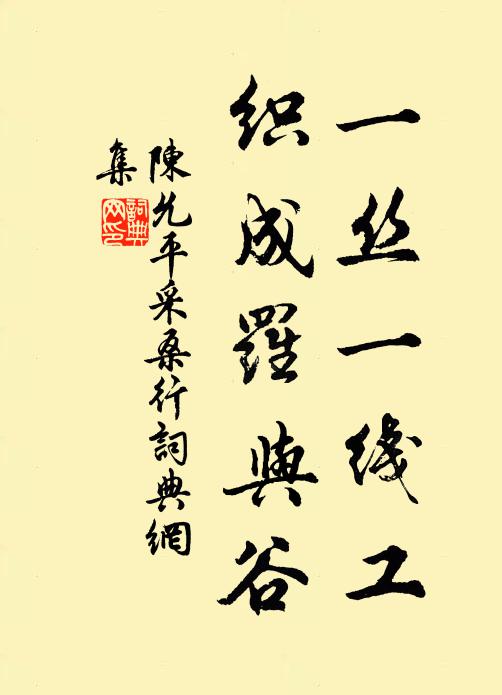 一丝一线工
织成羅與谷
陳允平采桑行詞典網
集
詞典網印